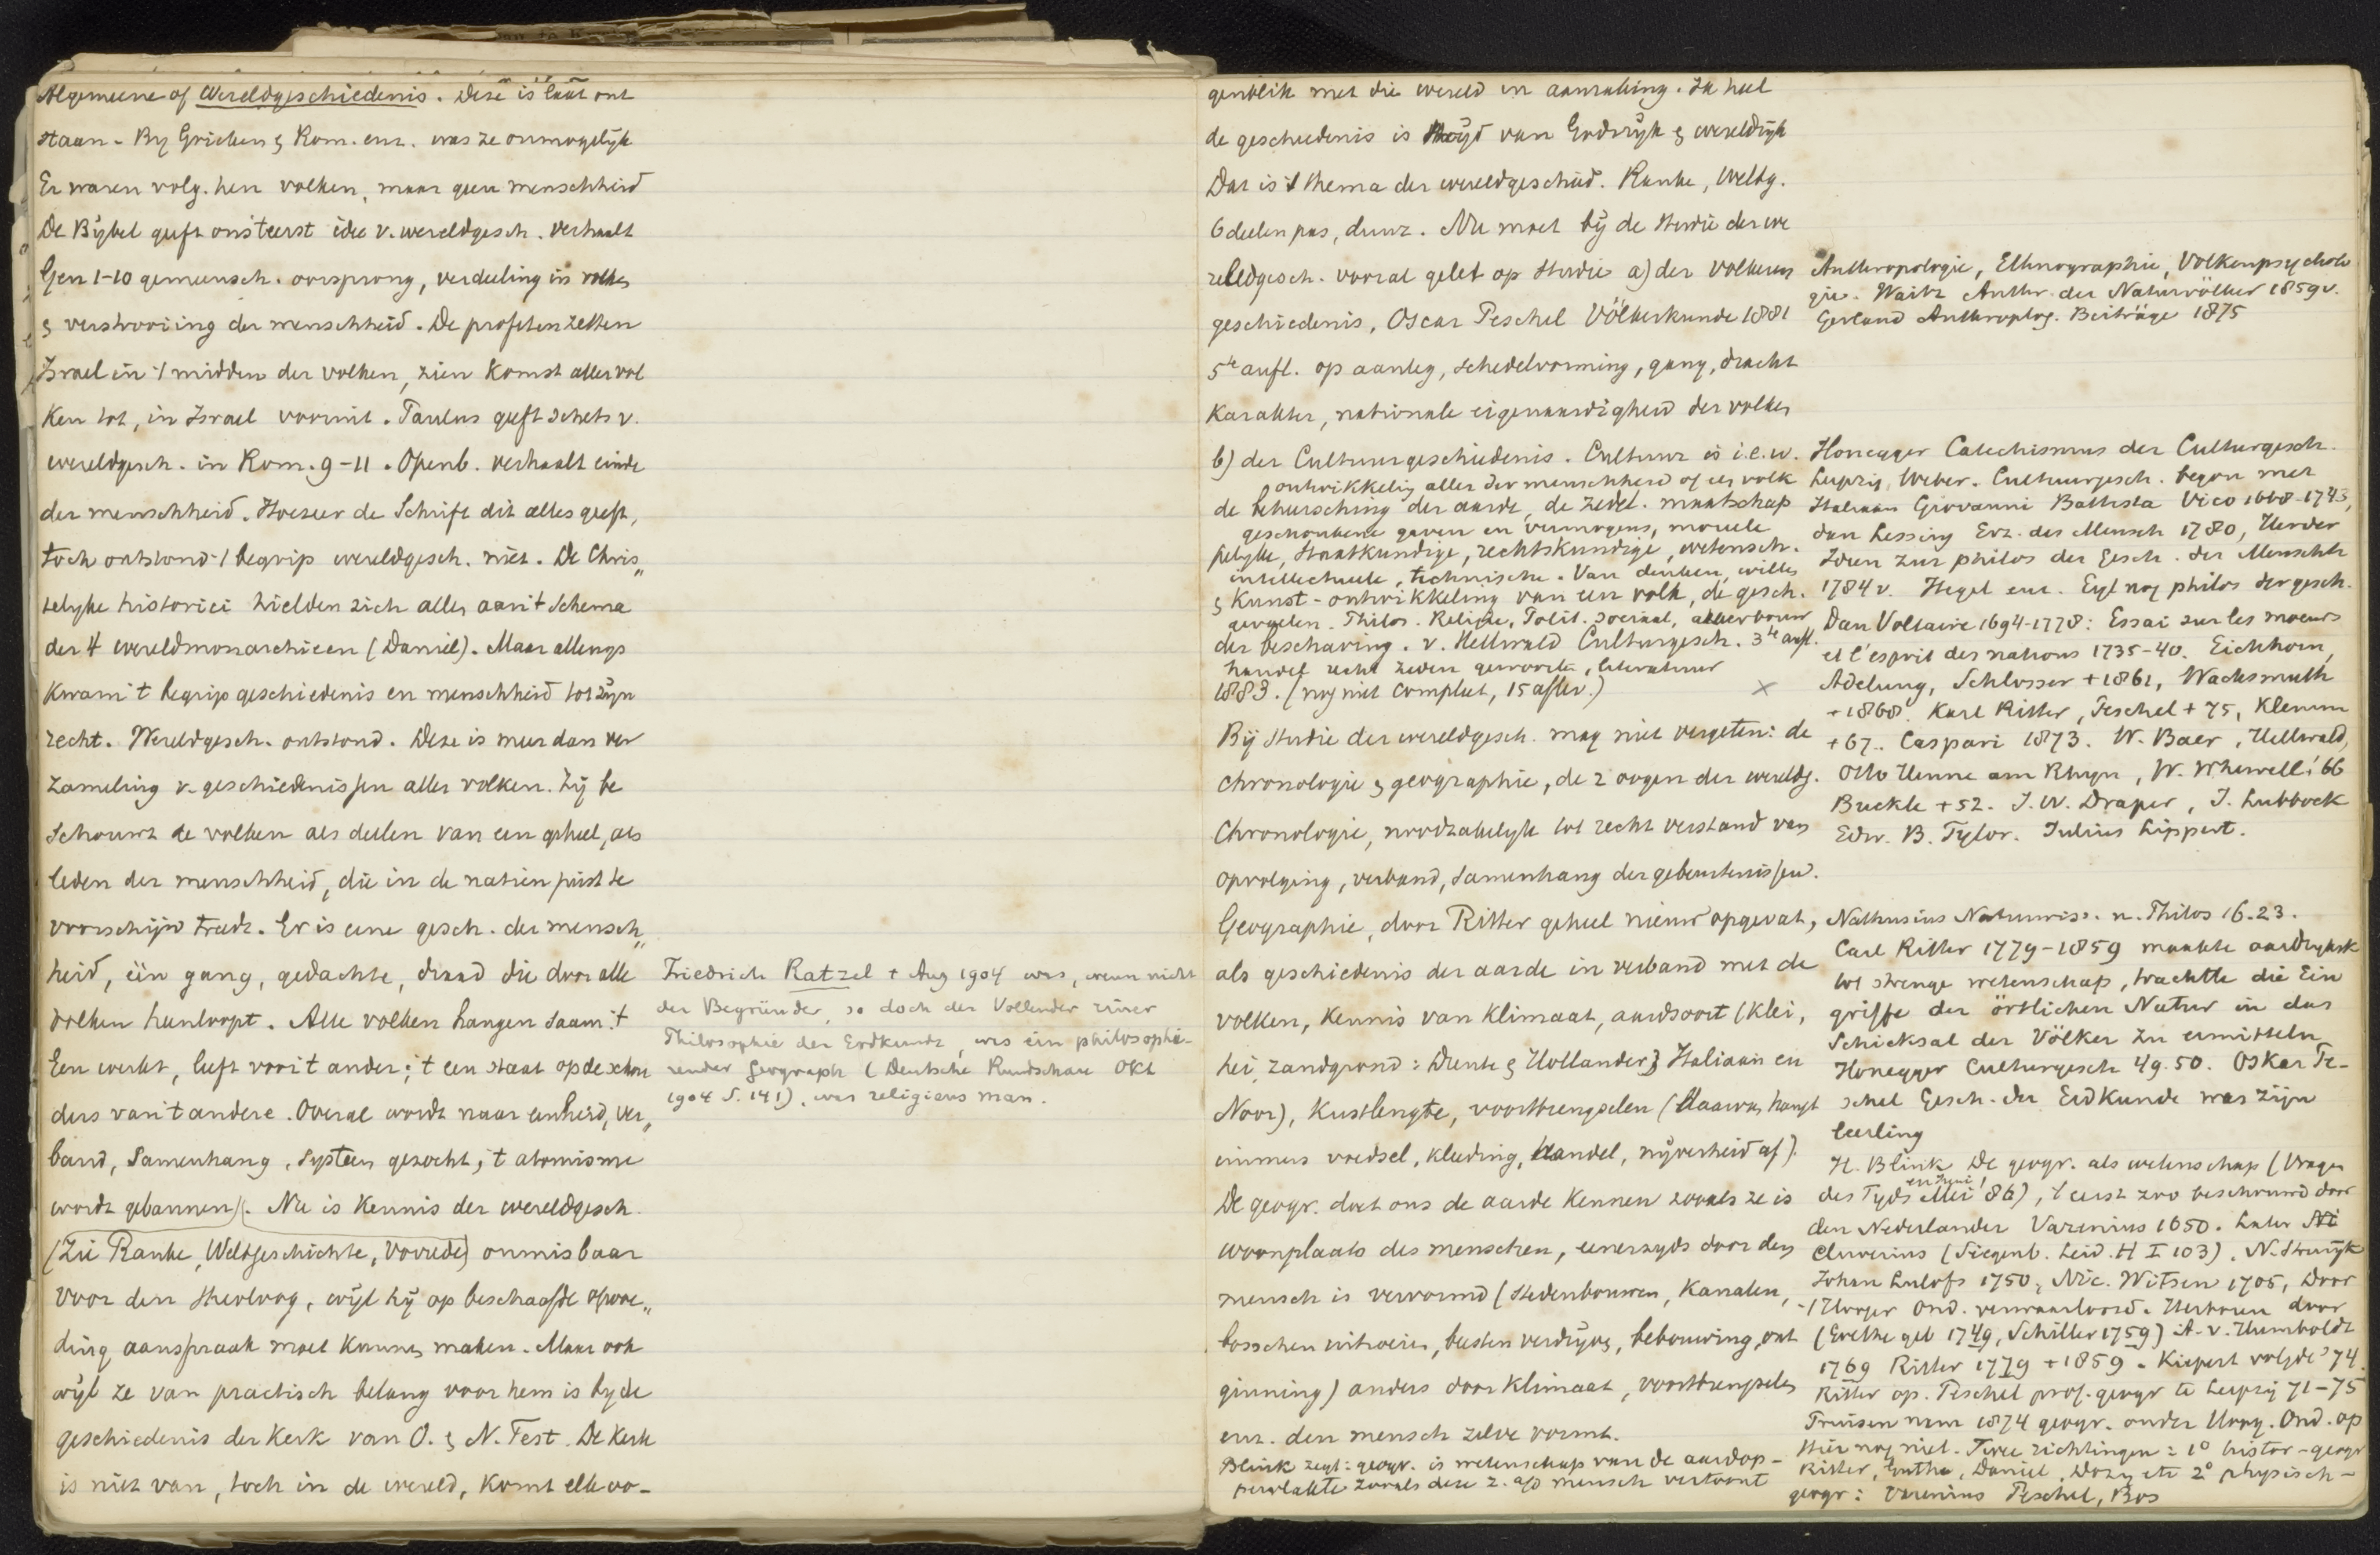 Algemeene of Wereldgeschiedenis. Deze is laat ont
staan. By Grieken & Rom. enz. was ze onmogelyk
Er waren volg. hen volken, maar geen menschheid
De Bybel geeft ons 't eerst idee v. wereldgesch. verhaalt
Gen 1-10 gemeensch. oorsprong, verdeeling in volken
& verstrooiing der menschheid. De profeten zetten
Israel in 't midden der volken, zien komst aller vol
ken tot, in Israel vooruit. Paulus geeft schets v.
wereldgesch. in Rom. 9-11. Openb. verhaalt einde
der menschheid. Hoezeer de Schrift dit alles geeft,
toch ontstond 't begrip wereldgesch. niet. De Chris„
telyke historici hielden zich allen aan 't schema
der 4 wereldmonarchieen (Daniel). Maar allengs
kwam 't begrip geschiedenis en menschheid tot zyn
recht. Wereldgesch. ontstond. Deze is meer dan ver
zameling v. geschiedenissen aller volken. Zij be
schouwt de volken als deelen van een geheel, als
leden der menschheid, die in de natien juist te
voorschijn treedt. Er is eene gesch. der mensch„
heid, één gang, gedachte, draad die door alle
volken heenloopt. Alle volken hangen saam: 't
Een werkt, leeft voor 't ander; 't een staat op de schou
ders van 't andere. Overal wordt naar eenheid, ver„
band, samenhang, systeem gezocht, 't atomisme
wordt gebannen). Nu is kennis der wereldgesch.
(Zie Ranke, Weltgeschichte, Vorrede) onmisbaar
voor den theoloog, wijl hij op beschaafde opvoe„
ding aanspraak moet kunnen maken. Maar ook
wijl ze van practisch belang voor hem is by de
geschiedenis der Kerk van O. & N. Test. De Kerk
is niet van, toch in de wereld, komt elk oo-
Friedrich Ratzel + Aug 1904 was, wenn nicht
der Begründer, so doch der Vollender einer
Philosophie der Erdkunde, was ein philosophie-
render Geograph (Deutsche Rundschau Okt
1904 S. 141), was religieus man.
genblik met die wereld in aanraking. Ja heel
de geschiedenis is stryd van Godsryk & wereldryk
Dat is 't thema der wereldgeschied. Ranke, Weltg.
6 deelen pas, duur. Nu moet bij de studie der we
reldgesch. vooral gelet op studie a) der volkeren
geschiedenis, Oscar Peschel Völkerkunde 1881
5te aufl. op aanleg, schedelvorming, gang, dracht
karakter, nationale eigenaardigheid der volken
b) der Cultuurgeschiedenis. Cultuur is i.e.w.
ontwikkeling aller der menschheid of een volk
de beheersching der aarde, de zedel. maatschap
geschonkene gaven en vermogens, moreele
pelyke, staatkundige, rechtskundige, wetensch.
intellectueele, technische. Van denken, willen
& kunst-ontwikkeling van een volk, de gesch.
gevoelen. Philos. Religie, Polit. sociaal, akkerbouw
der beschaving. v. Hellwald Culturgesch. 3te aufl.
handel recht zeden gewoonte, literatuur
1883. (nog niet compleet, 15 aflev.) x
Bij studie der wereldgesch. mag niet vergeten: de
chronologie & geographie, de 2 oogen der wereldg.
Chronologie, noodzakelyk tot recht verstand van
opvolging, verband, samenhang der gebeurtenissen.
Geographie, door Ritter geheel nieuw opgevat,
als geschiedenis der aarde in verband met de
volken, kennis van klimaat, aardsoort (klei,
hei, zandgrond: Drent & Hollander; Italiaan en
Noor), kustlengte, voortbrengselen (daarvan hangt
immers voedsel, kleeding, handel, nijverheid af).
De geogr. doet ons de aarde kennen zooals ze is
woonplaats des menschen, eenerzyds door den
mensch is vervormd (stedenbouwen, kanalen,
bosschen uitroeien, beesten verdryven, bebouwing, ont
ginning) anders door klimaat, voortbrengselen
enz. den mensch zelve vormt.
Blink zegt: geogr. is wetenschap van de aardop-
pervlakte zooals deze z. a/d mensch vertoont
Anthropologie, Ethnographie, Völkerpsycholo
gie. Waitz Anthr. der Naturvölker 1859 v.
Gerland Anthroplog. Beiträge 1875
Honegger Catechismus der Culturgesch.
Leipzig, Weber. Cultuurgesch. begon met
Italiaan Giovanni Battista Vico 1668-1743,
dan Lessing Erz. des Mensch 1780, Herder
Ideen zur philos der Gesch. der Menschh
1784 v. Hegel enz. Eyl nog philos der gesch.
Dan Voltaire 1694-1778: Essai sur les moeurs
et l'esprit des nations 1735-40. Eichhorn,
Adelung, Schlosser +1861, Wachsmuth
+1868. Karl Ritter, Peschel +75, Klemm
+67. Caspari 1873. W. Baer, Hellwald,
Otto Henne am Rhyn, W. Whewell '66
Buckle +52. J.W. Draper, J. Lubbock
Edw. B. Tylor. Julius Lippert.
Nathusius Naturwiss. u. Philos 16.23.
Carl Ritter 1779-1859 maakte aardryksk
tot strenge wetenschap, trachtte die Ein
griffe der örtlichen Natur in das
Schicksal der Völker zu ermitteln
Honegger Culturgesch 49.50. Oskar Pe-
schel Gesch. der Erdkunde was zijn
leerling
H. Blink De geogr. als wetenschap (Vragen
des Tyds Mei en Juni '86), 't eerst zoo beschouwd door
den Nederlander Varenius 1650. Later
Cluverius (Siegenb. Leid. H I 103). N. Struyk
Johan Lulofs 1750, Nic. Witsen 1705, Door
't Hooger Ond. verwaarloosd. Herboren door
(Goethe geb 1749, Schiller 1759) A. v. Humboldt
1769 Ritter 1779 +1859. Kiepert volgde '74
Ritter op. Peschel prof. geogr te Leipzig 71-75
Pruisen nam 1874 geogr. onder Hoog. Ond. op
Hier nog niet. Twee richtingen: 1° histor-geogr
Ritter, Guthe, Daniel, Dozy etc 2° physisch-
geogr: Varenius Peschel, Bos